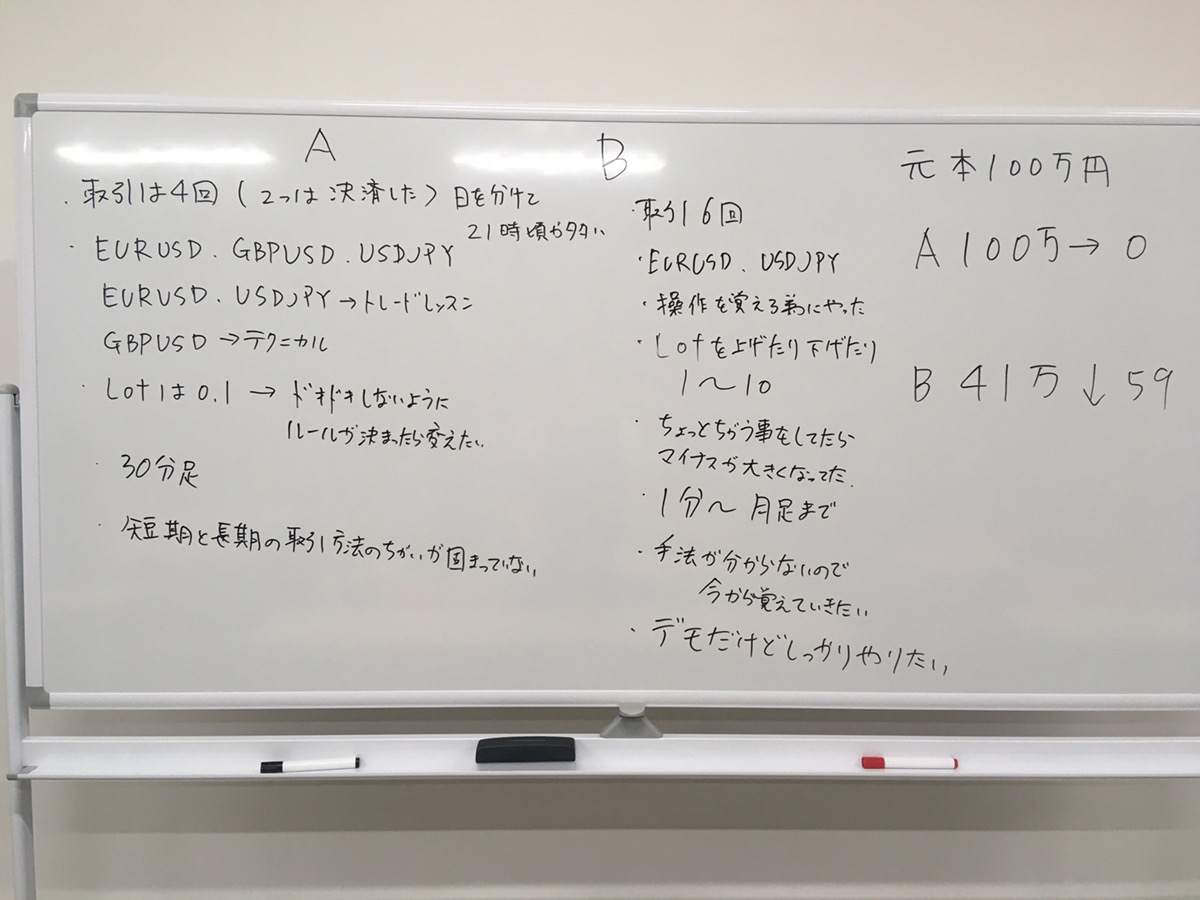 A
・取引は4回(2つは決済した)日を分けて
21時頃が多い
・EURUSD.GBPUSD.USDJPY
EURUSD.USDJPY→トレードレッスン
GBPUSD→テクニカル
・Lotは0.1→ドキドキしないように
ルールが決まったら変えたい
・30分足
・短期と長期の取引方法のちがいが固まっていない
B
・取引16回
・EURUSD.USDJPY
・操作を覚える為にやった
・Lotを上げたり下げたり
1〜10
・ちょっとちがう事をしてたら
マイナスが大きくなってた.
・1分〜月足まで
・手法が分からないので
今から覚えていきたい
・デモだけどしっかりやりたい
元本100万円
A 100万→0
B 41万↓59